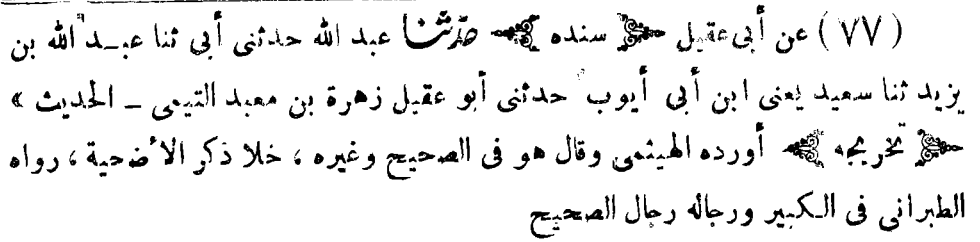 (٧٧) عن أبى عقيل ﴿ سنده ﴾ حدثنا عبد الله حدثنى أبى ثنا عبد الله بن
يزيد ثنا سعيد يعنى ابن أبى أيوب حدثنى أبو عقيل زهرة بن معبد التيمى ــ الحديث »
﴿ تخريجه ﴾ أورده الهيثمى وقال هو فى الصحيح وغيره ، خلا ذكر الأضحية ، رواه
الطبرانى فى الكبير ورجاله رجال الصحيح